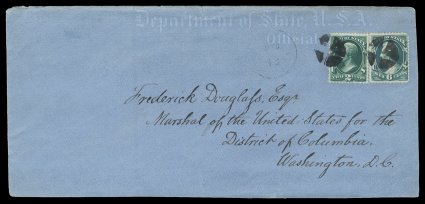 Department of State, U.S.A.
Official
2
6
Frederick Douglass, Esqr
Marshal of the United States for the
District of Columbia.
Washington, D.C.